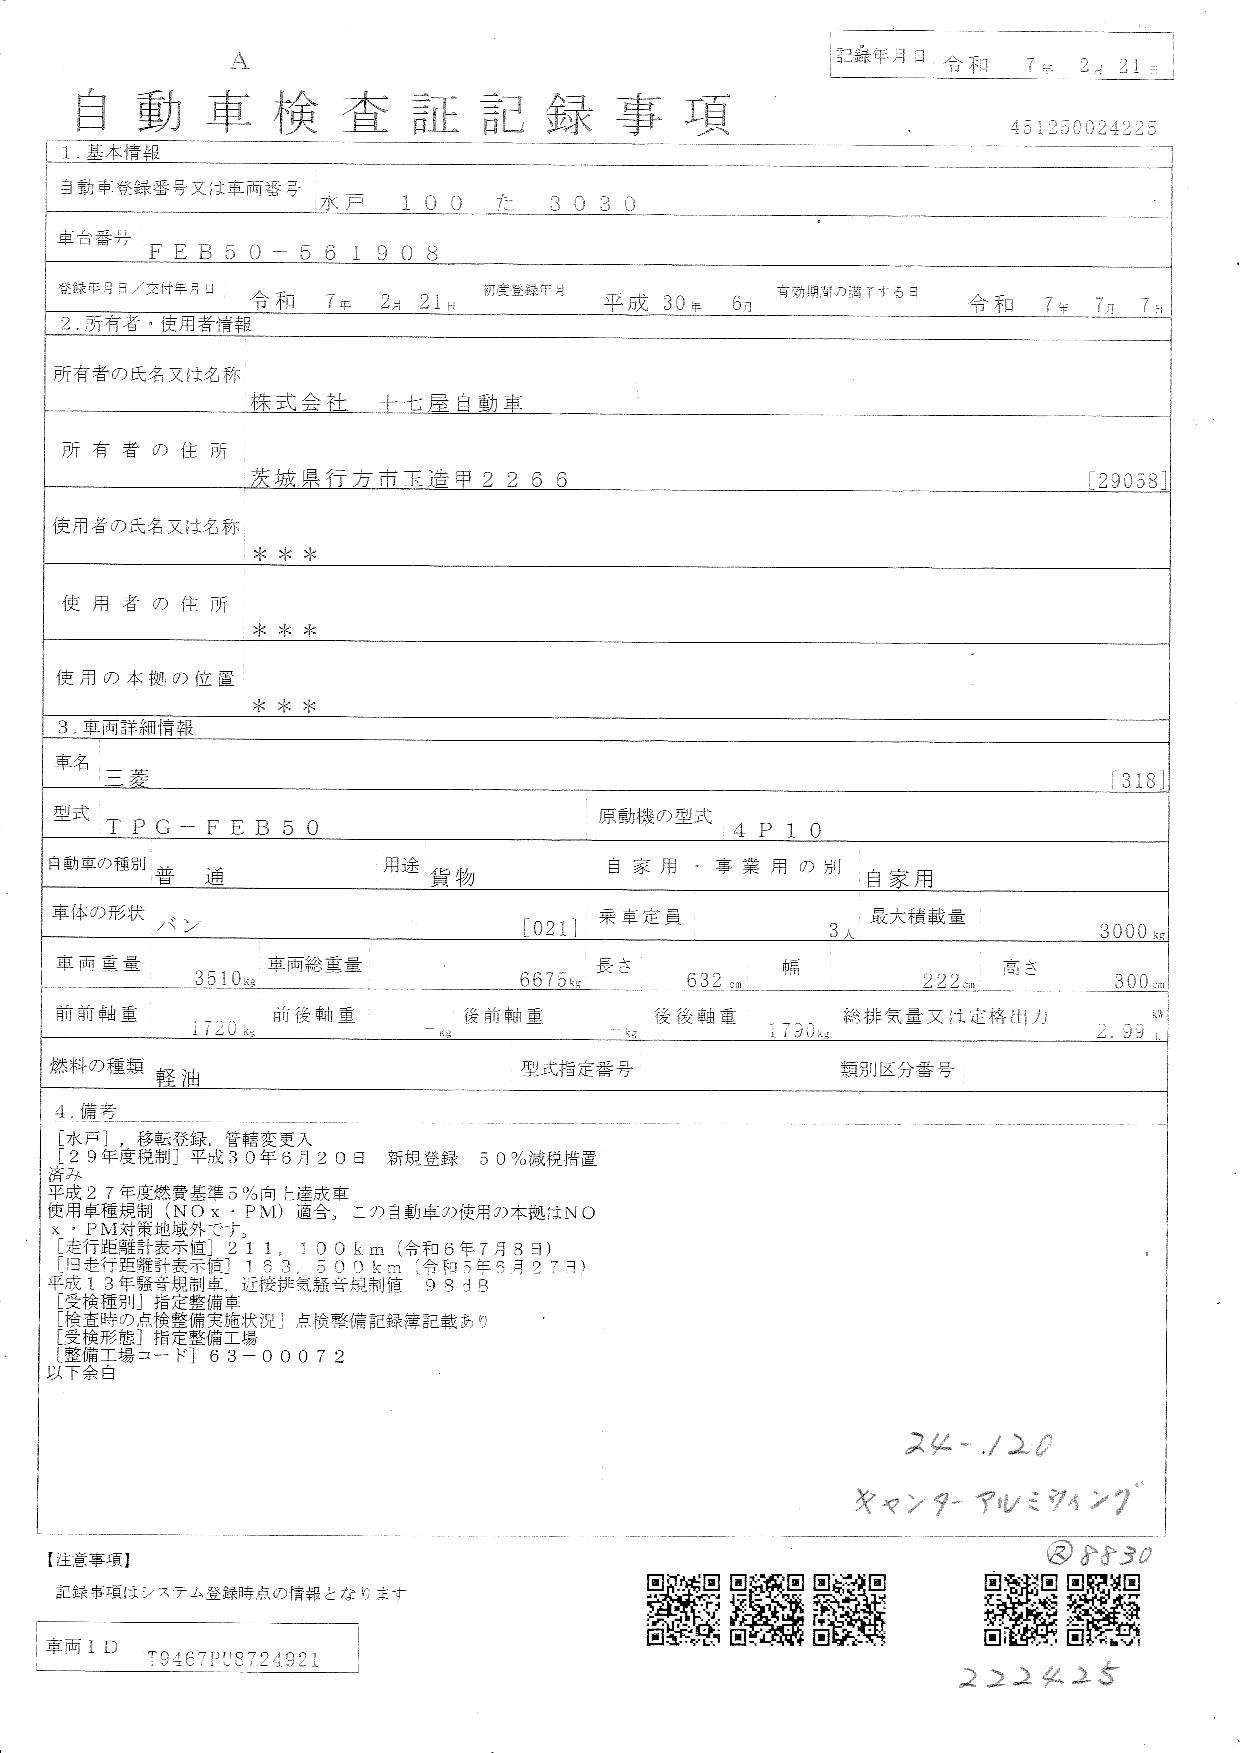 A
記録年月日 令和 7年 2月 21日
自動車検査証記録事項
451250024225
1.基本情報
自動車登録番号又は車両番号 水戸 100 た 3030
車台番号 FEB50-561908
登録年月日/交付年月日 令和 7年 2月 21日 初度登録年月 平成 30年 6月 有効期間の満了する日 令和 7年 7月 7日
2.所有者・使用者情報
所有者の氏名又は名称 株式会社 十七屋自動車
所有者の住所 茨城県行方市玉造甲2266 [29058]
使用者の氏名又は名称 ***
使用者の住所 ***
使用の本拠の位置 ***
3.車両詳細情報
車名 三菱 [318]
型式 TPG-FEB50 原動機の型式 4P10
自動車の種別 普通 用途 貨物 自家用・事業用の別 自家用
車体の形状 バン [021] 乗車定員 3人 最大積載量 3000kg
車両重量 3510kg 車両総重量 6675kg 長さ 632cm 幅 222cm 高さ 300cm
前前軸重 1720kg 前後軸重 -kg 後前軸重 -kg 後後軸重 1790kg 総排気量又は定格出力 2.99 kW L
燃料の種類 軽油 型式指定番号 類別区分番号
4.備考
[水戸],移転登録,管轄変更入
[29年度税制]平成30年6月20日 新規登録 50%減税措置
済み
平成27年度燃費基準5%向上達成車
使用車種規制(NOx・PM)適合。この自動車の使用の本拠はNO
x・PM対策地域外です。
[走行距離計表示値]211,100km(令和6年7月8日)
[旧走行距離計表示値]163,500km(令和5年6月27日)
平成13年騒音規制車,近接排気騒音規制値 98dB
[受検種別]指定整備車
[検査時の点検整備実施状況]点検整備記録簿記載あり
[受検形態]指定整備工場
[整備工場コード]63-00072
以下余白
24-.120
キャンターアルミウィング
Ⓡ8830
【注意事項】
記録事項はシステム登録時点の情報となります
車両ID T9467PU8724921
222425